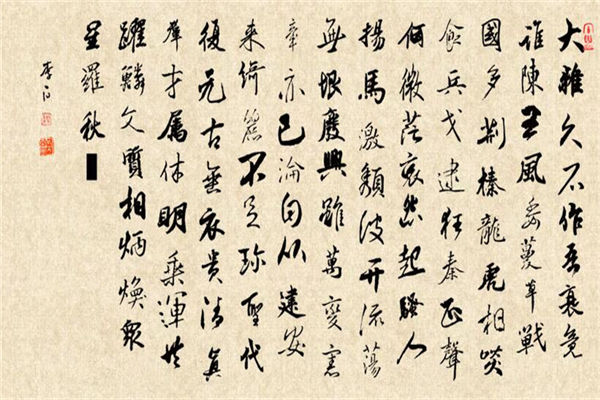 大雅久不作吾衰竟
誰陳王風委蔓草戰
國多荆榛龍虎相啖
食兵戈逮狂秦正聲
何微茫哀怨起騷人
揚馬激頹波开流蕩
無垠廢興雖萬變憲
章亦已淪自从建安
来綺麗不足珍聖代
復元古垂衣貴清真
群才属休明乘運共
躍鱗文質相炳煥眾
星羅秋
李白